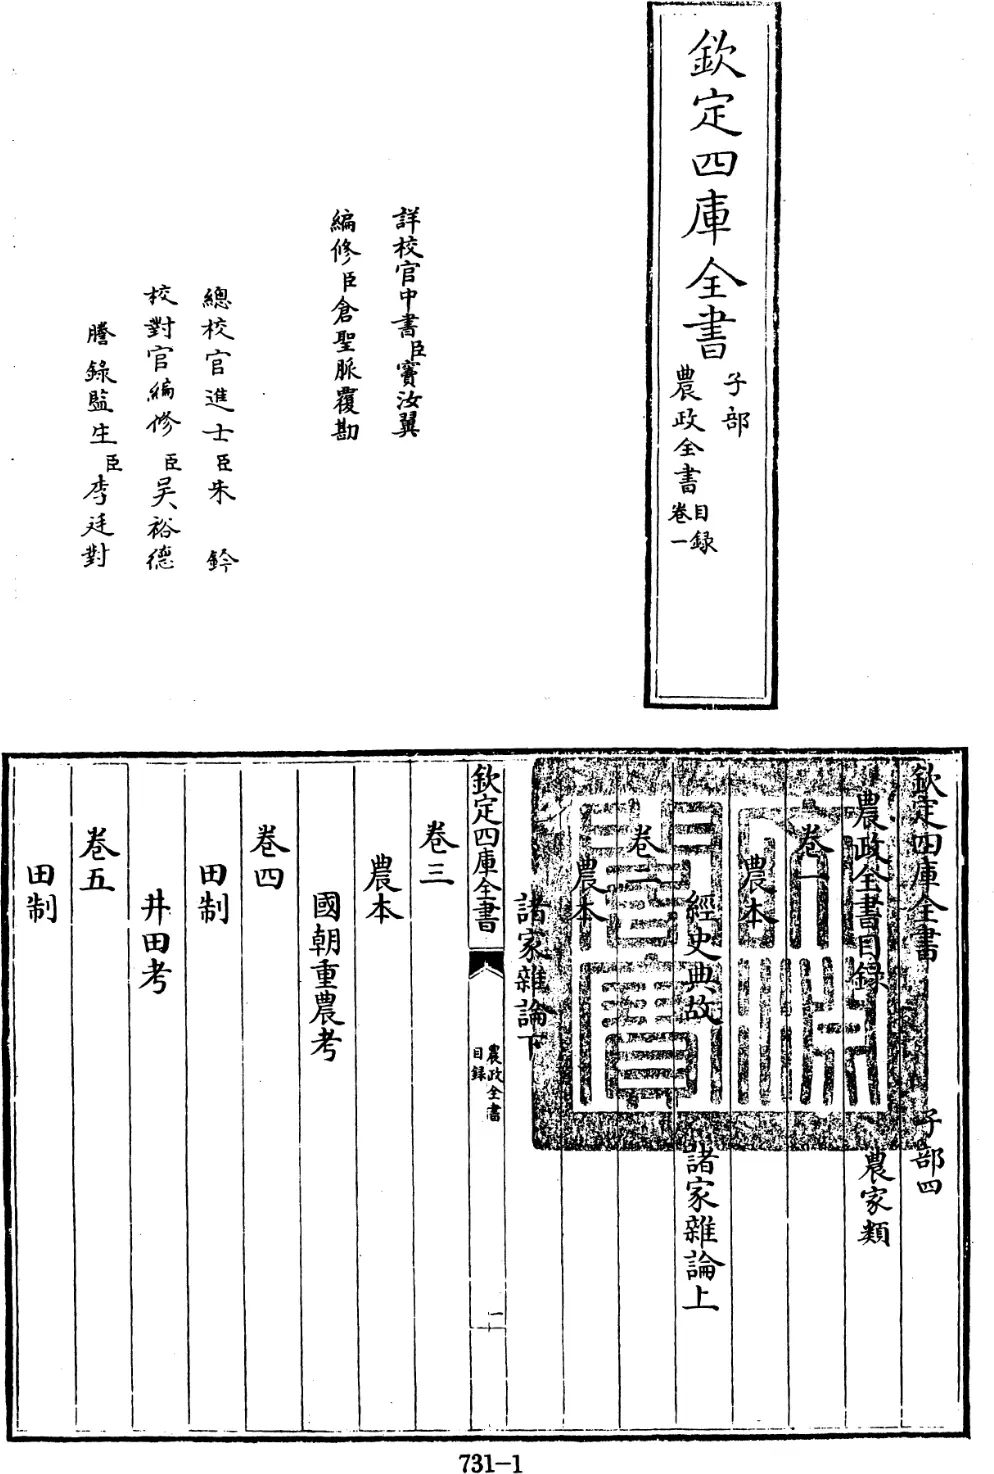 欽定四庫全書
子部
農政全書
目録
卷一
詳校官中書臣竇汝翼
編修臣倉聖脈覆勘
總校官進士臣朱鈐
校對官編修臣吴裕德
謄錄監生臣李廷對
欽定四庫全書 子部四
農政全書目録 農家類
卷一
農本
經史典故 諸家雜論上
卷二
農本
諸家雜論下
欽定四庫全書
農政全書
目録
一
卷三
農本
國朝重農考
卷四
田制
井田考
卷五
田制
731-1